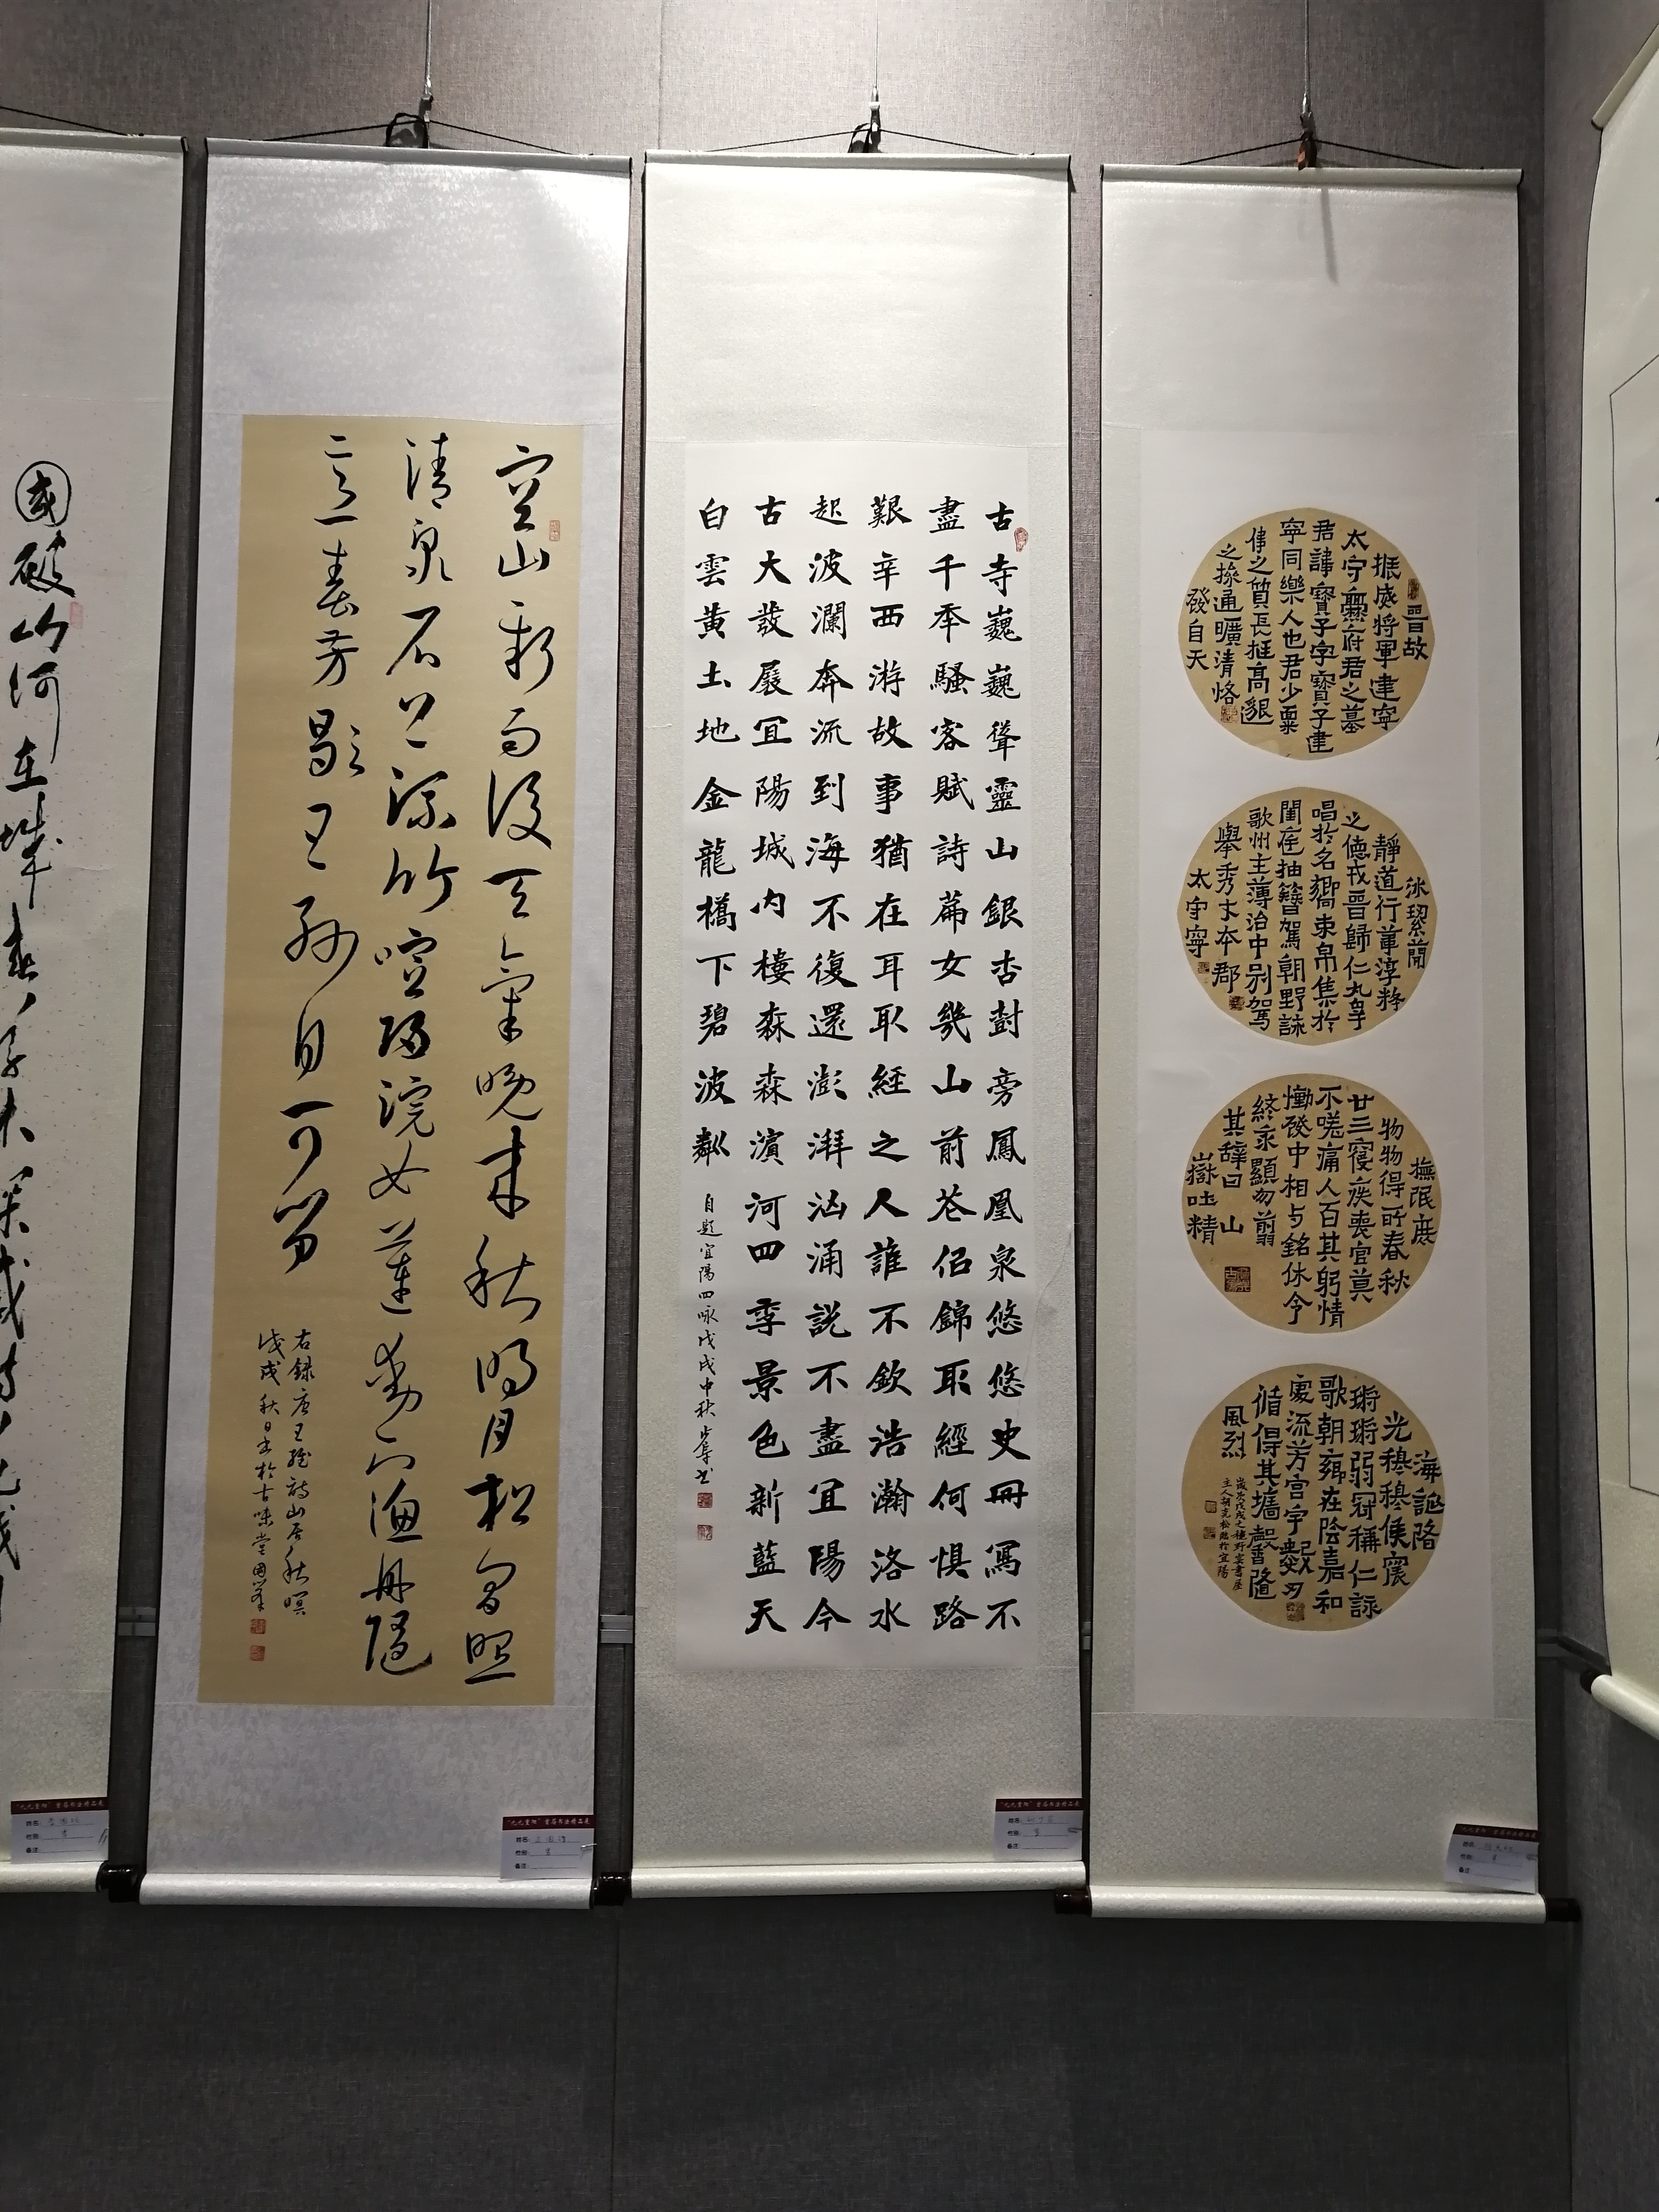 國破山河在城春草木深感時花濺
空山新雨後天氣晚來秋明月松間照
清泉石上流竹喧歸浣女蓮動下漁舟隨
意春芳歇王孫自可留
右録唐王維詩山居秋暝
戊戌秋日書於古味堂國
古寺巍巍聳靈山銀杏封旁鳳凰泉悠悠史冊寫不
盡千年騷客賦詩篇女幾山前花侶錦取經何懼路
艱辛西游故事猶在耳取經之人誰不欽浩瀚洛水
起波瀾奔流到海不復還澎湃洶涌説不盡宜陽今
古大發展宜陽城内樓森森濱河四季景色新藍天
白雲黄土地金龍橋下碧波粼
自題宜陽四咏戊戌中秋步書
晉故
振威將軍建寧
太守爨府君之墓
君諱寶子字寶子建
寧同樂人也君少稟
偉之質長挺高邈
之操通曠清恪
發自天
冰絜蘭
靜道行葦淳粹
之德戎晉歸仁九皋
唱於名響束帛集於
閨庭抽簪駕朝野詠
歌州主薄治中别駕
舉秀才本郡
太守寧
撫氓庶
物物得所春秋
廿三寑疾喪官莫
不嗟痛人百其躬情
慟發中相与銘休令
終永顯勿翦
其辤曰山
嶽吐精
海誕陷
光穆穆侯震
㻒㻒弱冠稱仁詠
歌朝鄉在陰嘉和
處流芳宫宇數仞
循得其墻馨隆
風烈
歲次戊戌之穐野雲書屋
主人胡克松臨於宜陽